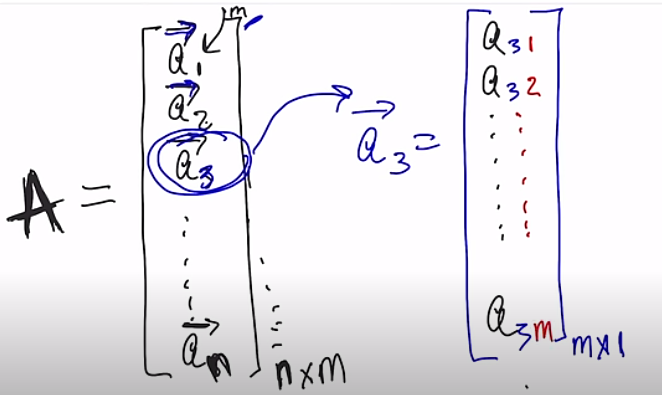 m
a⃗₁
a⃗₂
a⃗₃
A =
a⃗ₙ
n×m
a⃗₃ =
a₃₁
a₃₂
a₃ₘ
m×1